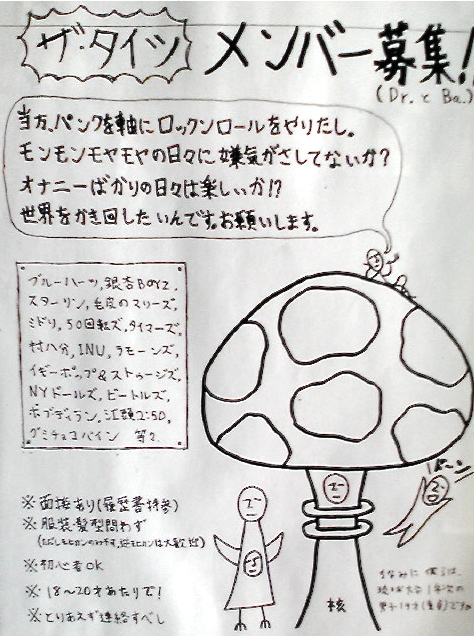 ザ・タイツ メンバー募集!
(Dr.とBa.)
当方、パンクを軸にロックンロールをやりたし。
モンモンモヤモヤの日々に嫌気がさしてないか?
オナニーばかりの日々は楽しいか!?
世界をかき回したいんです。お願いします。
ブルーハーツ, 銀杏BOYZ,
スターリン, 毛皮のマリーズ,
ミドリ, 50回転ズ, タイマーズ,
村八分, INU, ラモーンズ,
イギーポップ&ストゥージズ,
NYドールズ, ビートルズ,
ボブディラン, 江頭2:50,
グミチョコパイン 等々
ドーン
※面接あり(履歴書持参)
※服装・髪型問わず
※初心者OK
※18〜20才あたりで!
※とりあえず連絡すべし
核
ちなみに僕らは、